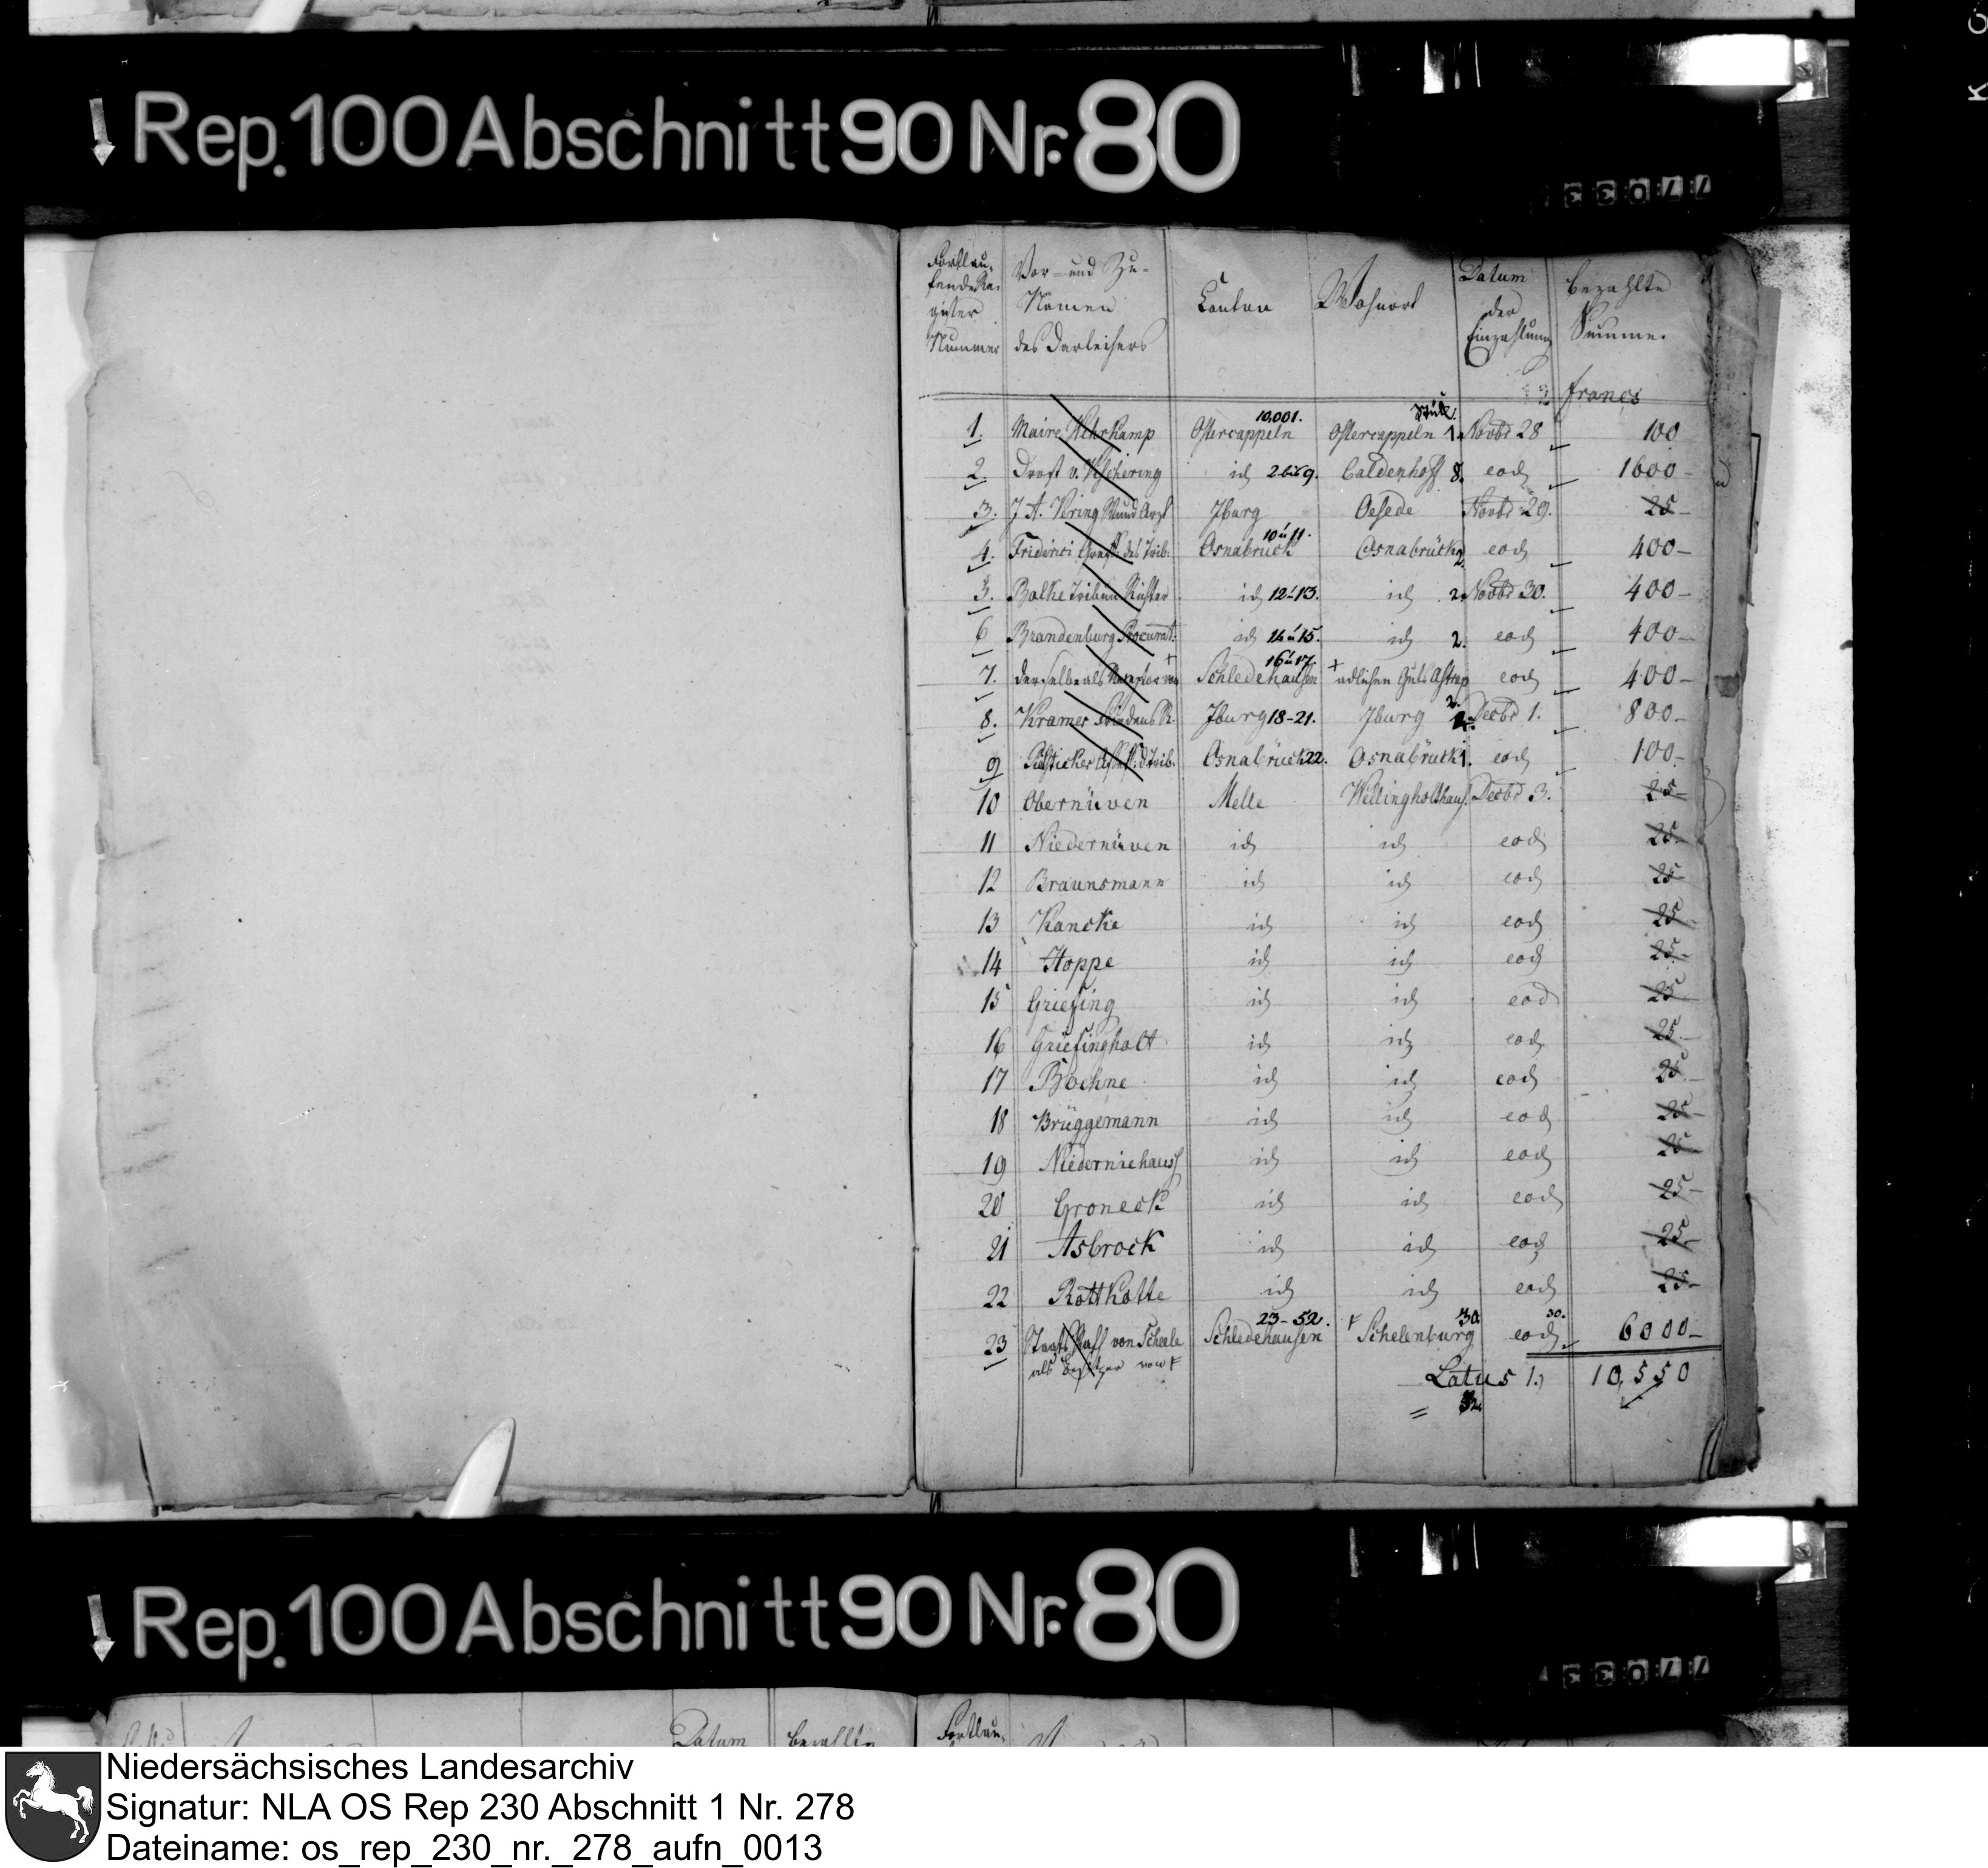 Rep. 100 Abschnitt 90 Nr. 80
77033
Fortlau- Vor- und Zu- Canton Wohnort Datum bezahlte
fende Re- Namen der Summe.
gister des Darleihers Einzahlung
Nummer
francs
10,001. Stück.
1. Maire Ostercappeln Ostercappeln 1. Novbr 28 100
2. Drost v. id 2 bis 9. Caldenhoff 8. eod 1600-
3. J A. Vering Wund Arzt Iburg Oesede Novbr 29. 25-
10 u 11.
4. Friderici des Trib. Osnabrück Osnabrück 2. eod 400-
5. Balke Tribun Richter id 12 u 13. id 2. Novbr 30. 400-
6 Brandenburg Procurat. id 14 u 15. id 2. eod 400-
16 u 17.
7. derselbe als von + Schledehausen + adlichen Gut Astrup eod 400-
2.
8. Kramer Friedens R. Iburg 18-21. Iburg Decbr 1. 800-
9 d Trib. Osnabrück 22. Osnabrück 1. eod 100-
10 Obernüven Melle Wellingholthaus. Decbr 3. 25-
11 Niedernüven id id eod 25-
12 Braunsmann id id eod 25-
13 Kancke id id eod 25-
14 Hoppe id id eod 25-
15 Griesing id id eod 25-
16 Griesingholt id id eod 25-
17 Boehne id id eod 25-
18 Brüggemann id id eod 25-
19 Niederniehaus id id eod 25-
20 Groneck id id eod 25-
21 Asbrock id id eod 25-
22 Rottkotte id id eod 25-
23-52. 30. 30.
23 Staats Rath von Scheele Schledehausen F Schelenburg eod 6000-
als Besitzer von F
Latus 1. 10,550
= 52.
Rep. 100 Abschnitt 90 Nr. 80
77033
Datum bezahlte Fortlau-
Niedersächsisches Landesarchiv
Signatur: NLA OS Rep 230 Abschnitt 1 Nr. 278
Dateiname: os_rep_230_nr._278_aufn_0013